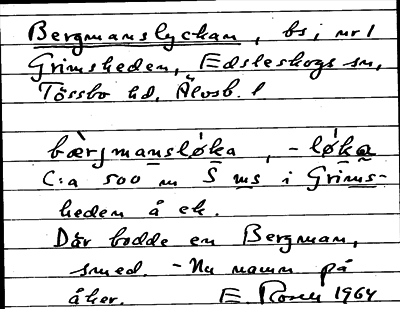 Bergmanslyckan, bs i nr 1
Grimsheden, Edsleskogs sn,
Tössbo hd, Älvsb. l
bærjmansløka, -løka
C:a 500 m S ms i Grims-
heden å ek.
Där bodde en Bergman,
smed. - Nu namn på
åker. E Rosell 1964